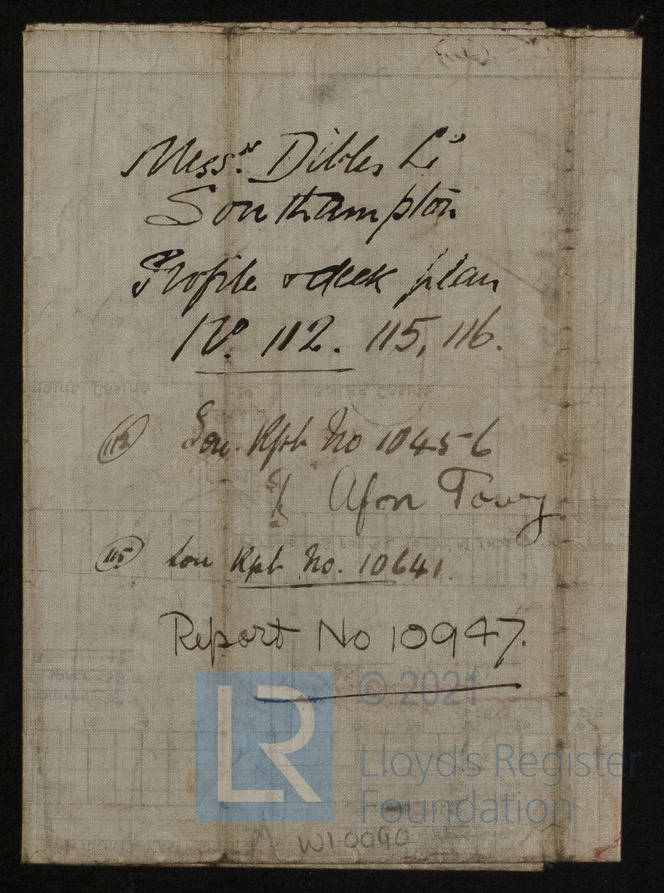 Messrs. Dibles Ld
Southampton
Profile & deck plan
No. 112. 115, 116.
112 Sou. Rpt No 10456
Afon Towy
115 Sou Rpt No. 10641.
Report No 10947.
LR © 2021
Lloyd's Register
Foundation
W1-0040